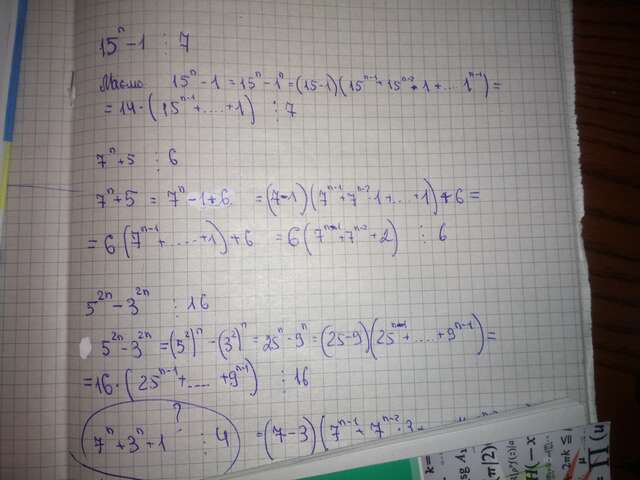 15ⁿ - 1 ⋮ 7
Маємо 15ⁿ - 1 = 15ⁿ - 1ⁿ = (15-1)(15ⁿ⁻¹ + 15ⁿ⁻² · 1 + ... 1ⁿ⁻¹) =
= 14 · (15ⁿ⁻¹ + ..... + 1) ⋮ 7
7ⁿ + 5 ⋮ 6
7ⁿ + 5 = 7ⁿ - 1 + 6 = (7-1)(7ⁿ⁻¹ + 7ⁿ⁻² · 1 + ... + 1) + 6 =
= 6(7ⁿ⁻¹ + ..... + 1) + 6 = 6(7ⁿ⁻¹ + 7ⁿ⁻² + 2) ⋮ 6
5²ⁿ - 3²ⁿ ⋮ 16
5²ⁿ - 3²ⁿ = (5²)ⁿ - (3²)ⁿ = 25ⁿ - 9ⁿ = (25-9)(25ⁿ⁻¹ + ..... + 9ⁿ⁻¹) =
= 16 · (25ⁿ⁻¹ + ..... + 9ⁿ⁻¹) ⋮ 16
?
7ⁿ + 3ⁿ + 1 ⋮ 4 = (7-3)(7ⁿ⁻¹ + 7ⁿ⁻² · 3 +